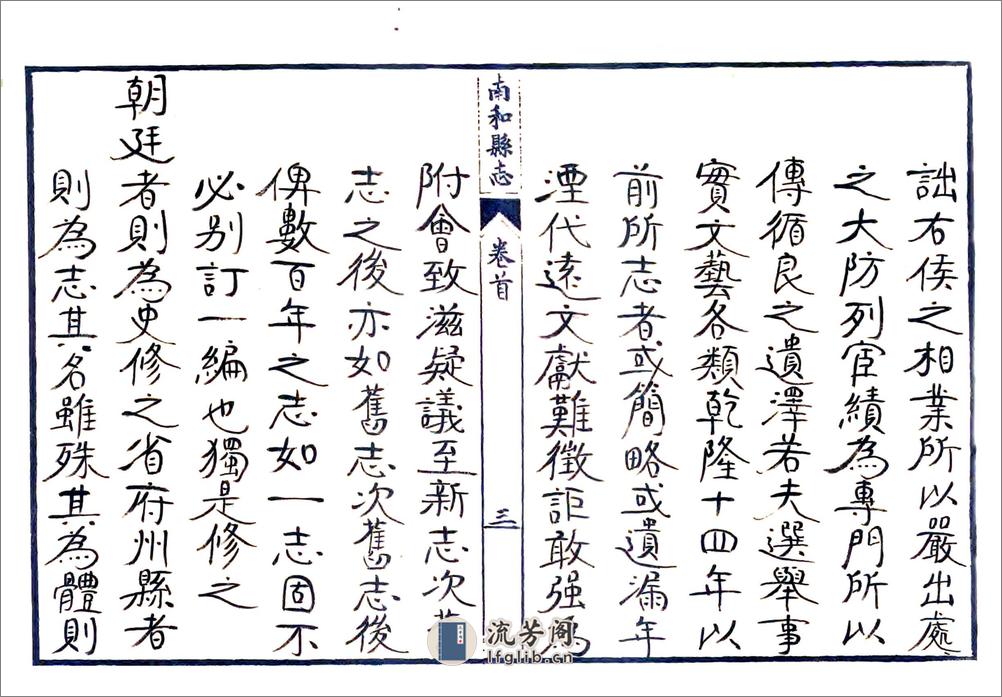 詘右侯之相業所以嚴出處
之大防列宦績為專門所以
傳循良之遺澤若夫選舉事
實文藝各類乾隆十四年以
前所志者或簡略或遺漏年
湮代遠文獻難徵詎敢强為
南和縣志
卷首
三
附會致滋疑議至新志次舊
志之後亦如舊志次舊志後
俾數百年之志如一志固不
必别訂一編也獨是修之
朝廷者則為史修之省府州縣者
則為志其名雖殊其為體則
流芳阁
lfglib.cn